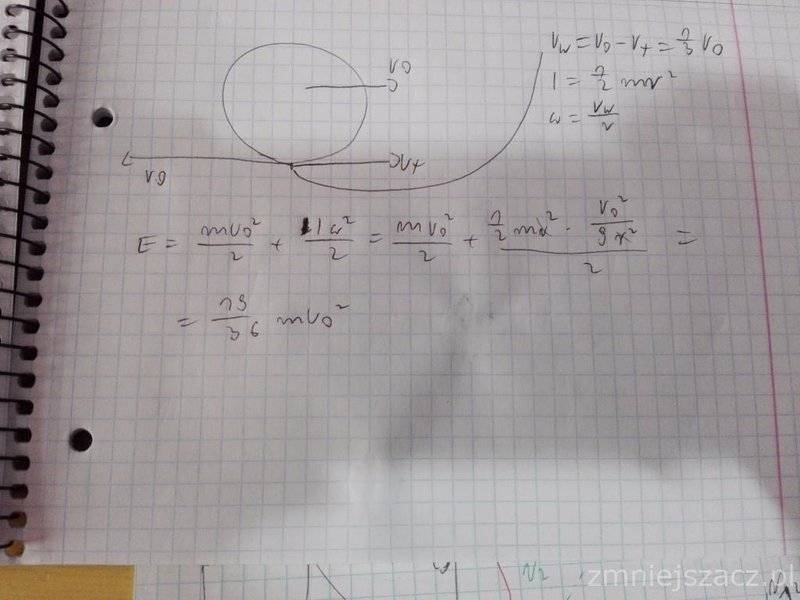 v₀
v₀
v_t
v_w = v₀ - v_t = 1/3 v₀
I = 1/2 mr²
ω = v_w/r
E = mv₀²/2 + Iω²/2 = mv₀²/2 + (1/2 mr² · v₀²/9r²)/2 =
= 19/36 mv₀²
zmniejszacz.pl